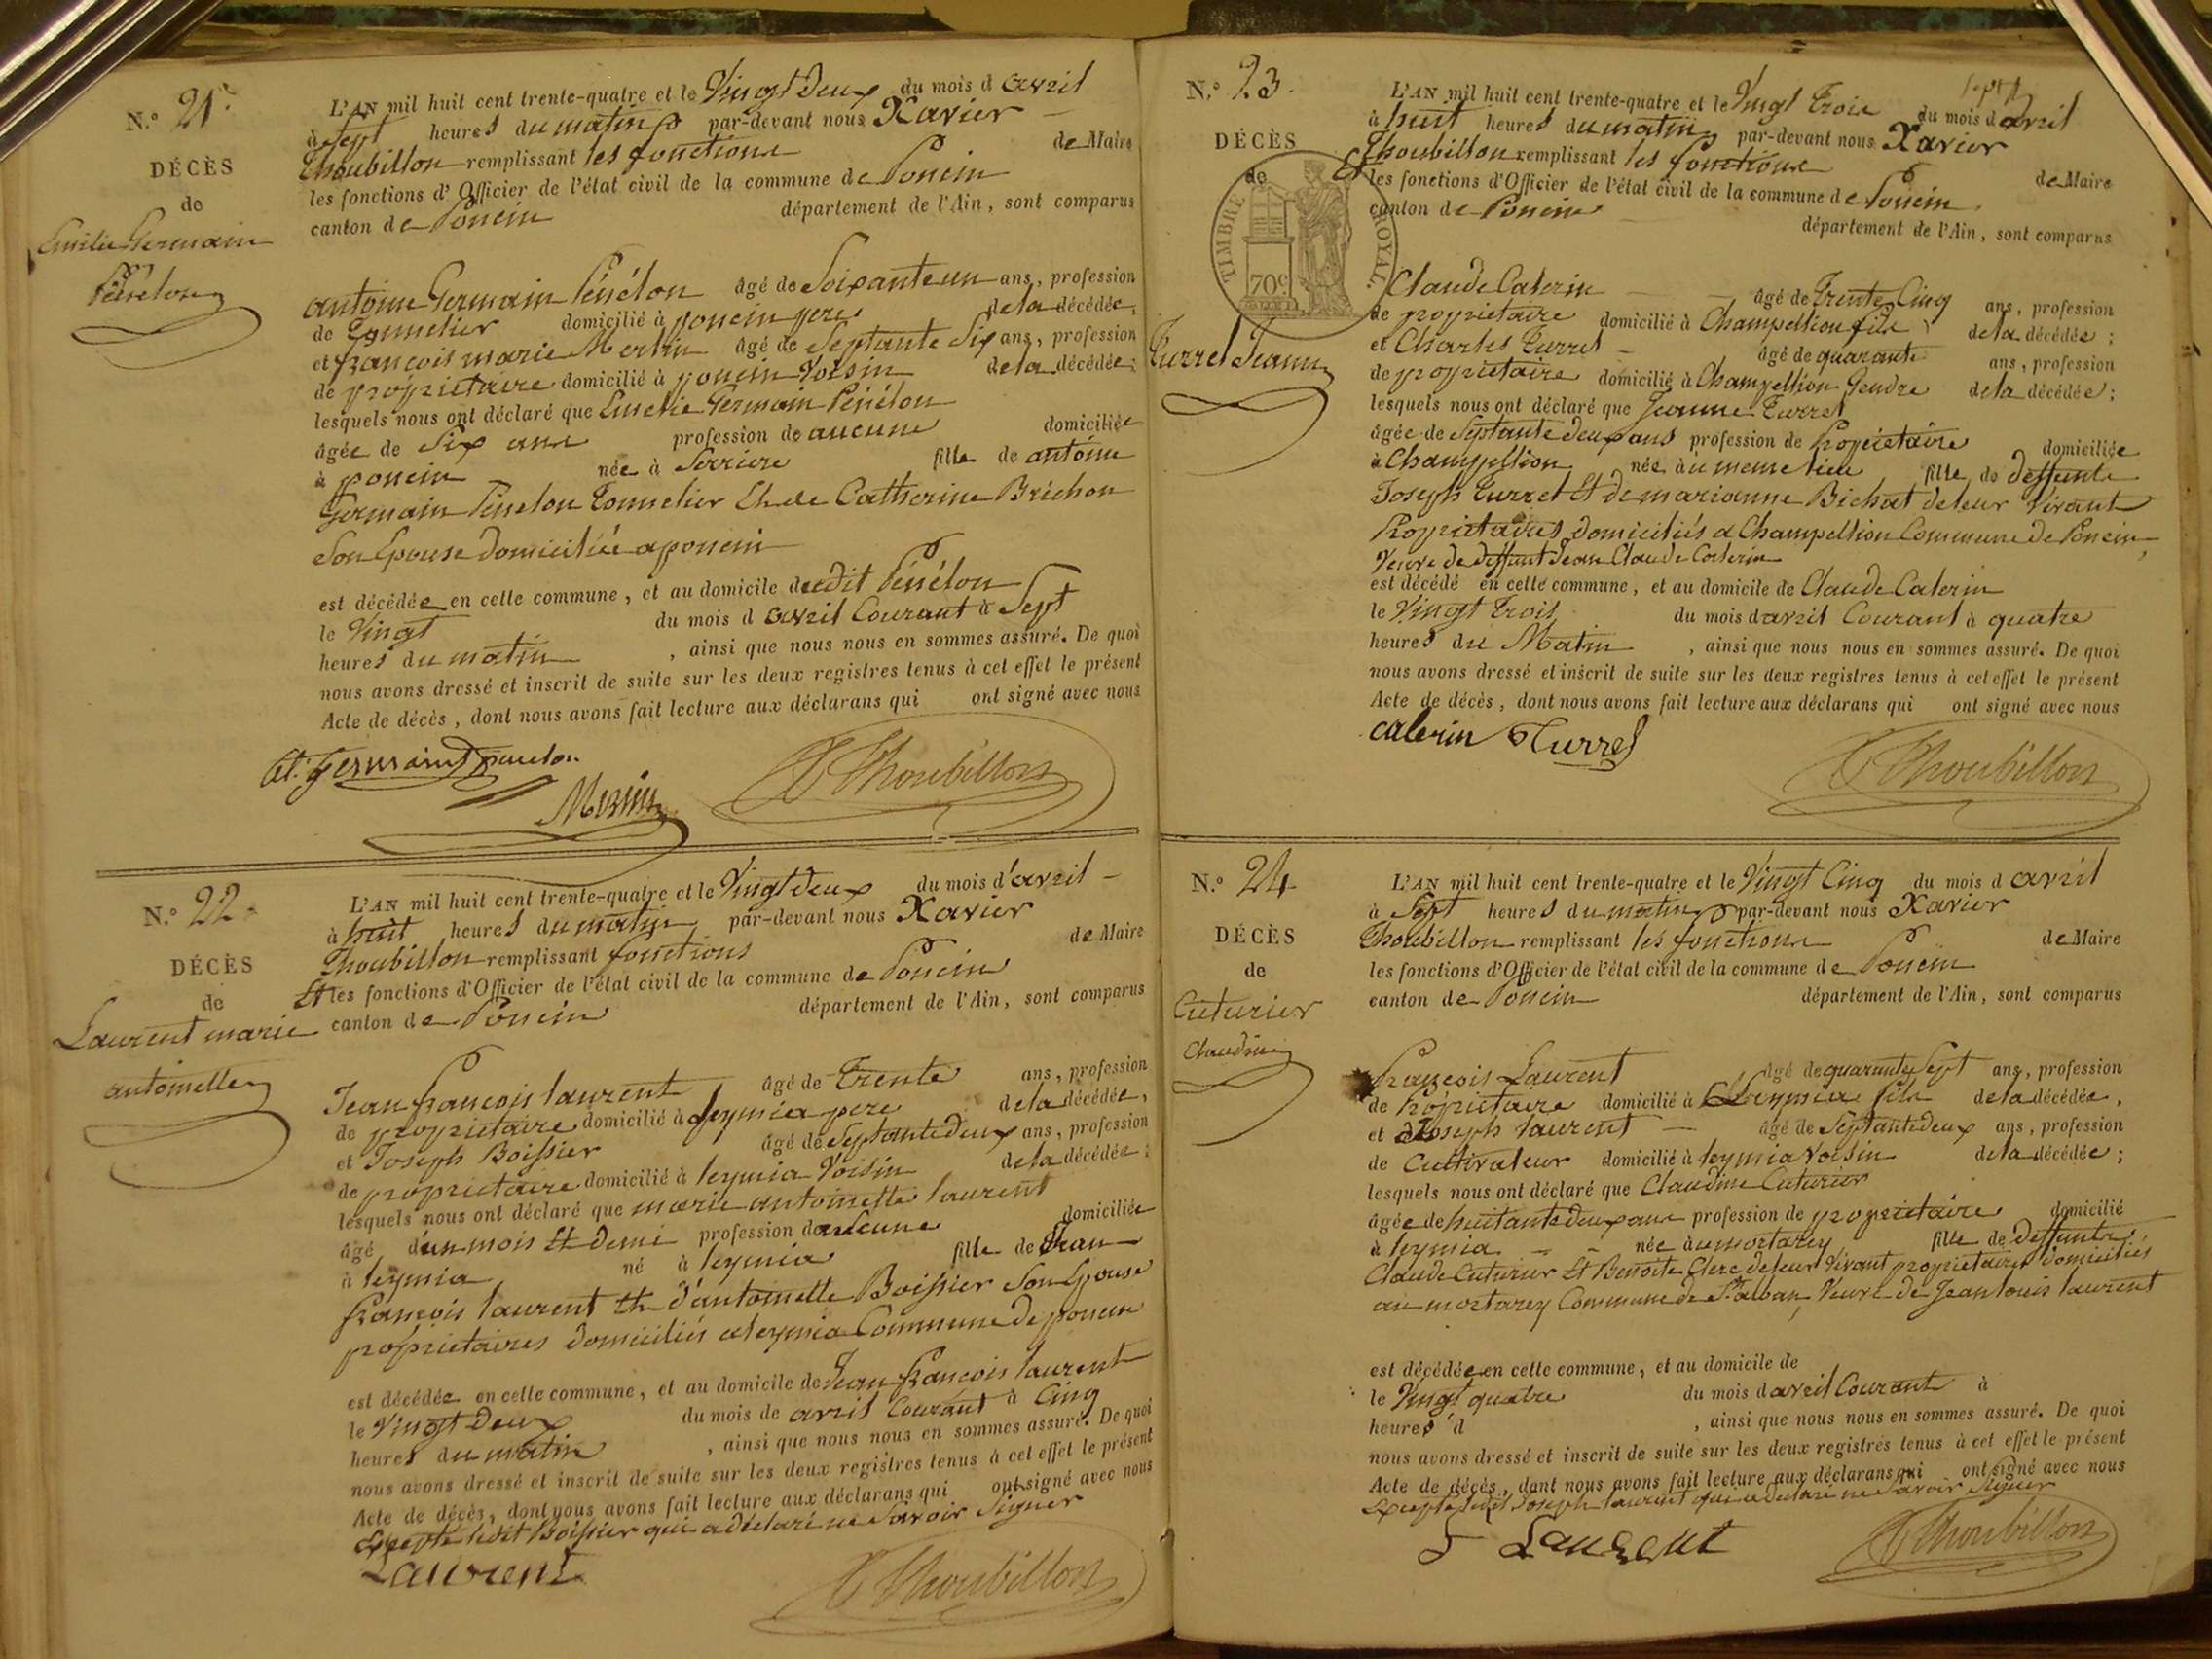 N.° 21.
DÉCÈS
de
Emilie Germain
Pénélon
L'AN mil huit cent trente-quatre et le Vingt Deux du mois d avril
à Sept heures du matin par-devant nous Xavier
Thoubillon remplissant les fonctions de Maire
les fonctions d'Officier de l'état civil de la commune de Poncin
canton de Poncin département de l'Ain, sont comparus
antoine Germain Pénélon âgé de Soixante un ans, profession
de Tonnelier domicilié à poncin pere de la décédée,
et françois marie Merlin âgé de Septante Six ans, profession
de propriétaire domicilié à poncin Voisin de la décédée;
lesquels nous ont déclaré que Emelie Germain Pénélon
âgée de Six ans profession de aucune domiciliée
à poncin née à Serriere fille de antoine
Germain Pénelon Tonnelier Et de Catherine Brichon
Son Epouse domiciliée a poncin
est décédée en cette commune, et au domicile dudit Pénélon
le Vingt du mois d avril Courant à Sept
heures du matin, ainsi que nous nous en sommes assuré. De quoi
nous avons dressé et inscrit de suite sur les deux registres tenus à cet effet le présent
Acte de décès, dont nous avons fait lecture aux déclarans qui ont signé avec nous
at. Germain penelon
X Thoubillon
N.° 22.
DÉCÈS
de
Laurent marie
antoinette
L'AN mil huit cent trente-quatre et le Vingt deux du mois d'avril
à huit heures du matin par-devant nous Xavier
Thoubillon remplissant fonctions de Maire
Et les fonctions d'Officier de l'état civil de la commune de Poncin
canton de Poncin département de l'Ain, sont comparus
Jean françois laurent âgé de Trente ans, profession
de propriétaire domicilié à leymia pere de la décédée,
et Joseph Boissier âgé de Septante deux ans, profession
de propriétaire domicilié à leymia Voisin de la décédée;
lesquels nous ont déclaré que marie antoinette laurent
âgé d'un mois Et demi profession d aucune domiciliée
à leymia né à leymia fille de Jean
françois laurent Et d'antoinette Boissier Son Epouse
propriétaires domiciliés a leymia Commune de poncin
est décédée en cette commune, et au domicile de Jean françois laurent
le Vingt Deux du mois de avril Courant à Cinq
heures du matin, ainsi que nous nous en sommes assuré. De quoi
nous avons dressé et inscrit de suite sur les deux registres tenus à cet effet le présent
Acte de décès, dont nous avons fait lecture aux déclarans qui ont signé avec nous
Excepté ledit Boissier qui a déclaré ne Savoir Signer
Laurent
X Thoubillon
N.° 23.
DÉCÈS
de
TIMBRE ROYAL.
70c
Turrel Jeanne
L'AN mil huit cent trente-quatre et le Vingt Trois du mois d avril
à huit heures du matin par-devant nous Xavier
Thoubillon remplissant les fonctions de Maire
Et les fonctions d'Officier de l'état civil de la commune de Poncin
canton de Poncin département de l'Ain, sont comparus
Claude Caterin âgé de Trente Cinq ans, profession
de propriétaire domicilié à Champellion fils de la décédée;
et Charles Turrel âgé de quarante ans, profession
de propriétaire domicilié à Champellion Gendre de la décédée;
lesquels nous ont déclaré que Jeanne Turrel
âgée de Septante deux ans profession de Propriétaire domiciliée
à Champellion née au meme lieu fille de deffunts
Joseph Turrel Et de marianne Bichat de leur Vivant
Propriétaires Domiciliés a Champellion Commune de Poncin,
Veuve de deffunt Jean Claude Caterin
est décédé en cette commune, et au domicile de Claude Caterin
le Vingt Trois du mois d avril Courant à quatre
heures du Matin, ainsi que nous nous en sommes assuré. De quoi
nous avons dressé et inscrit de suite sur les deux registres tenus à cet effet le présent
Acte de décès, dont nous avons fait lecture aux déclarans qui ont signé avec nous
caterin Turrel
X Thoubillon
N.° 24
DÉCÈS
de
Cuturier
Claudine
L'AN mil huit cent trente-quatre et le Vingt Cinq du mois d avril
à Sept heures du matin par-devant nous Xavier
Thoubillon remplissant les fonctions de Maire
les fonctions d'Officier de l'état civil de la commune de Poncin
canton de Poncin département de l'Ain, sont comparus
françois Laurent âgé de quarante Sept ans, profession
de Propriétaire domicilié à Leymia fils de la décédée,
et Joseph laurent âgé de Septante deux ans, profession
de Cultivateur domicilié à leymia Voisin de la décédée;
lesquels nous ont déclaré que Claudine Cuturier
âgée de huitante deux ans profession de propriétaire domicilié
à leymia née au mortarey fille de deffunts
Claude Cuturier Et Benoite Clerc de leur Vivant propriétaires domiciliés
au mortarey Commune de St alban, Veuve de Jean louis laurent
est décédée en cette commune, et au domicile de
le Vingt quatre du mois d avril Courant à
heures d, ainsi que nous nous en sommes assuré. De quoi
nous avons dressé et inscrit de suite sur les deux registres tenus à cet effet le présent
Acte de décès, dont nous avons fait lecture aux déclarans qui ont signé avec nous
Excepté ledit Joseph laurent qui a déclaré ne Savoir Signer
F Laurent
X Thoubillon